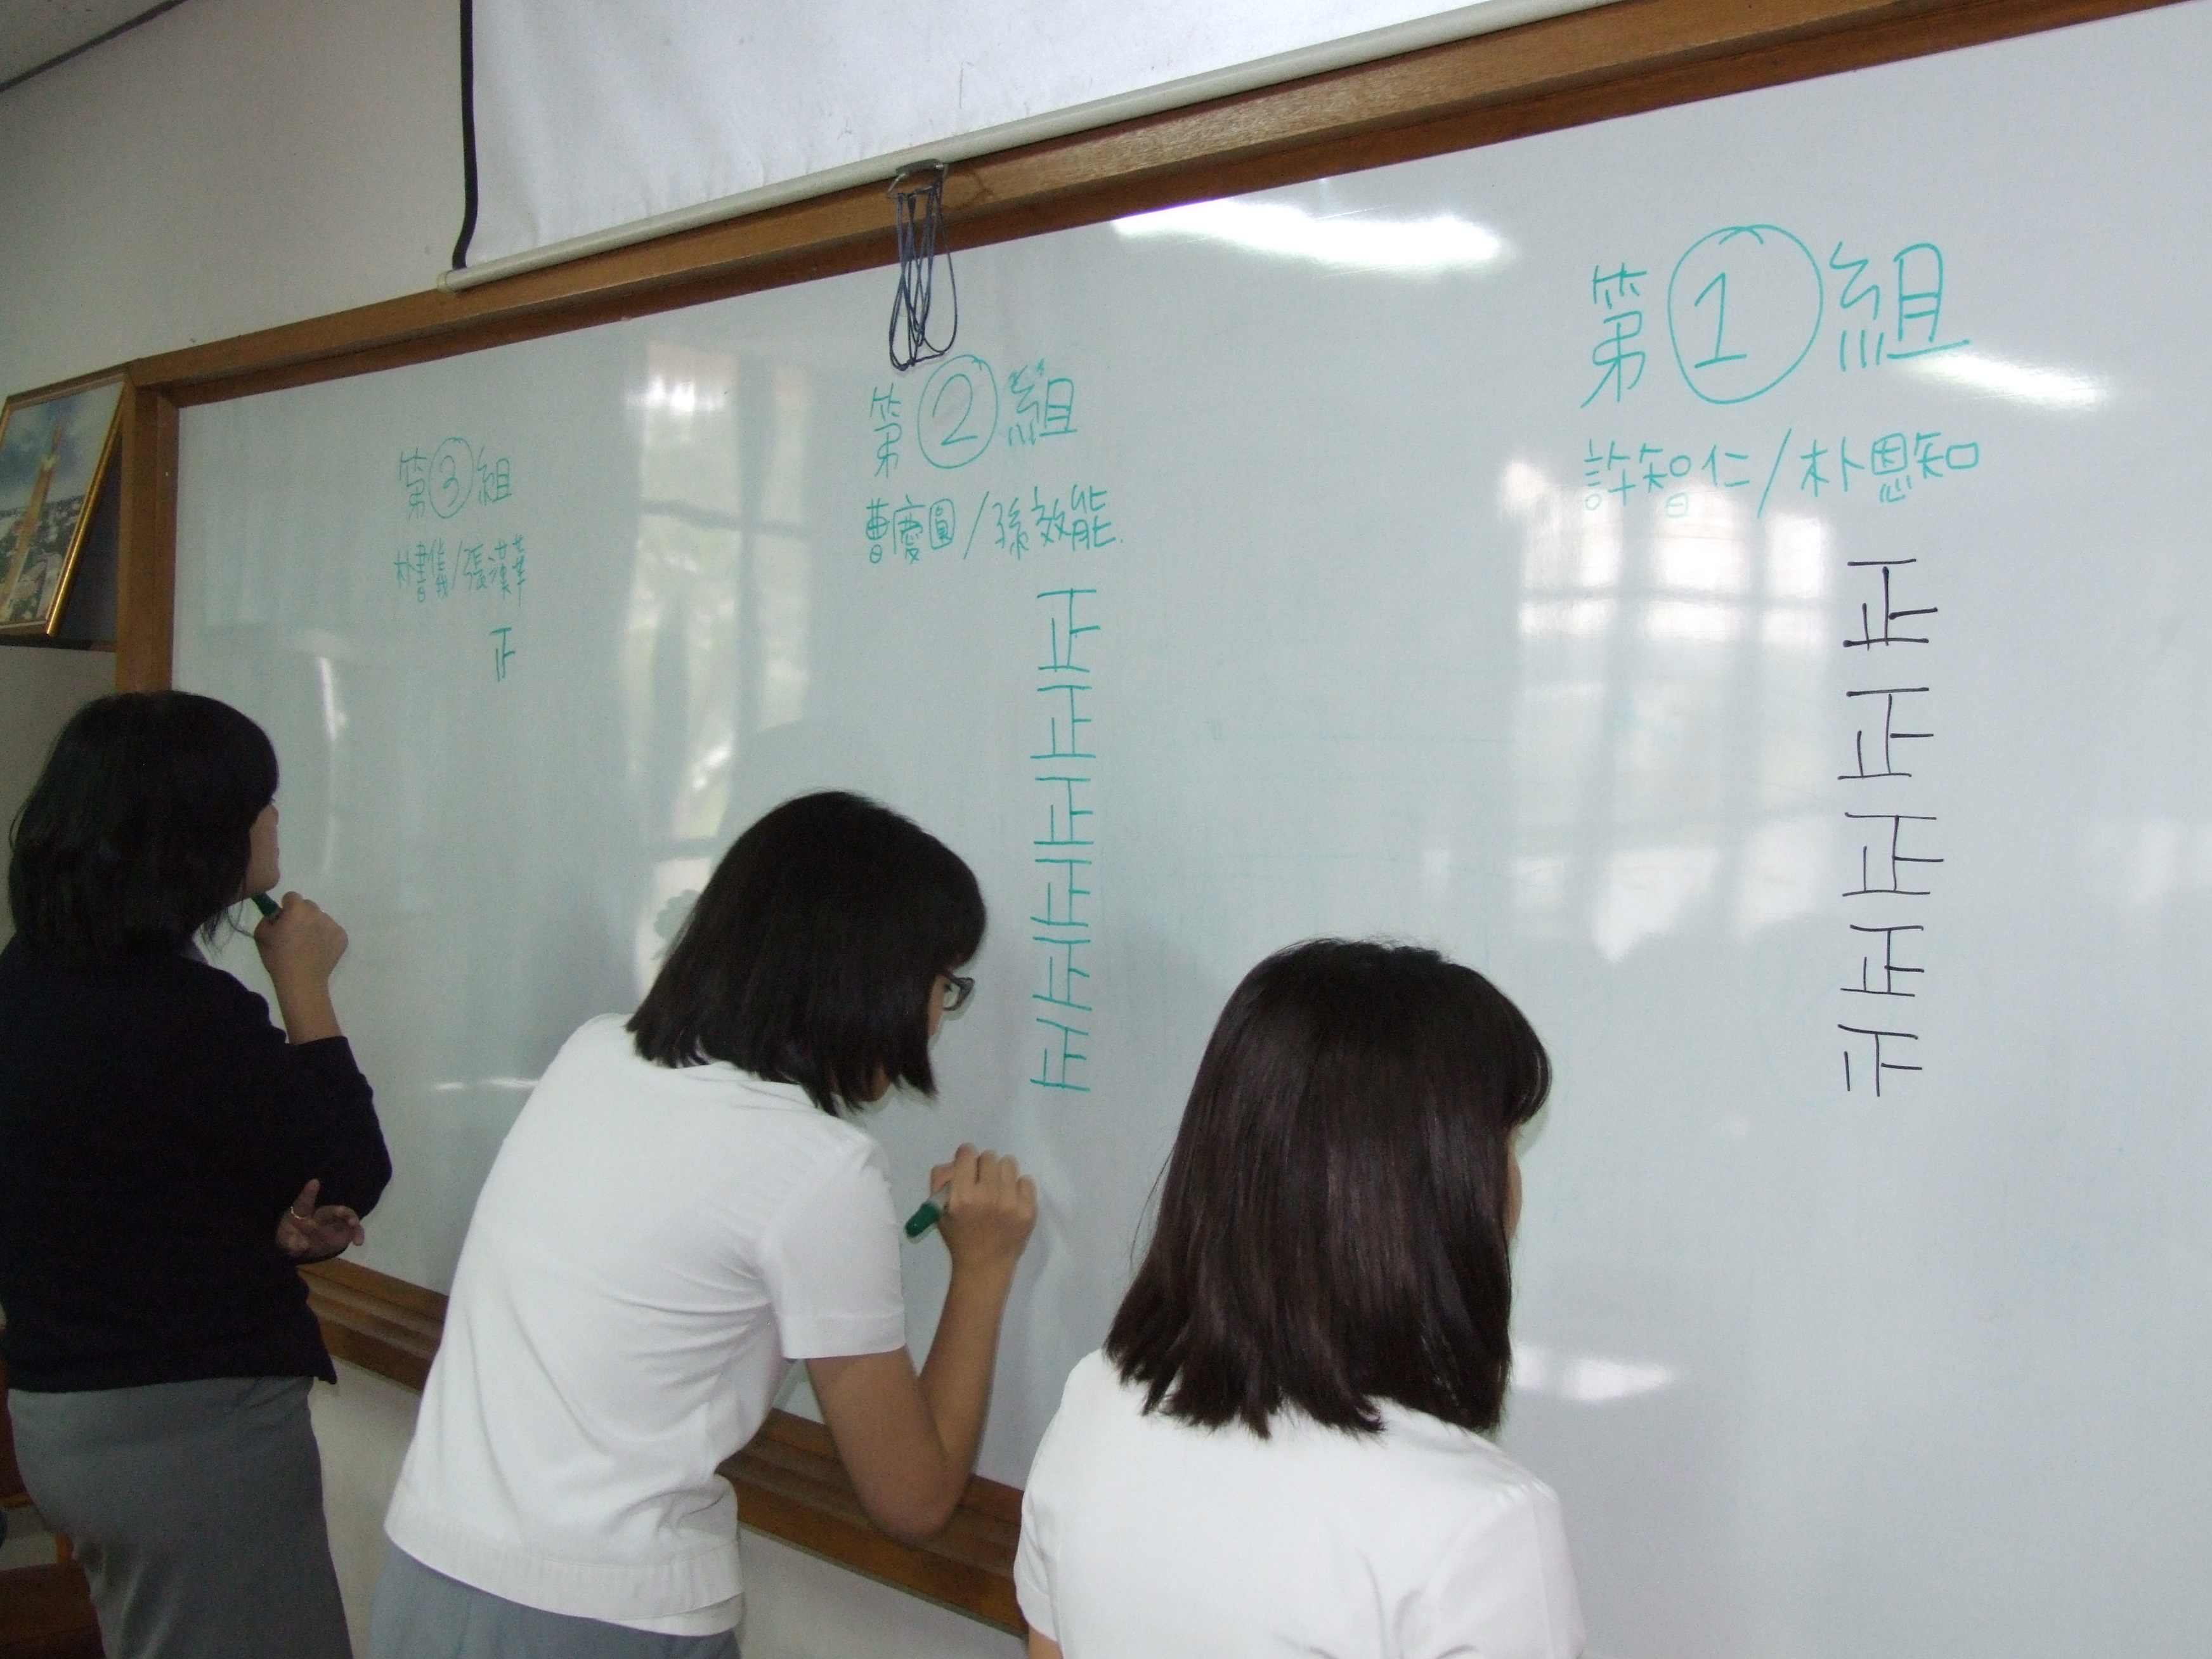 第①組
許智仁/朴恩知
正
正
正
正
第②組
曹慶圓/孫效能
正
正
正
正
正
正
第③組
朴書儀/張漢華